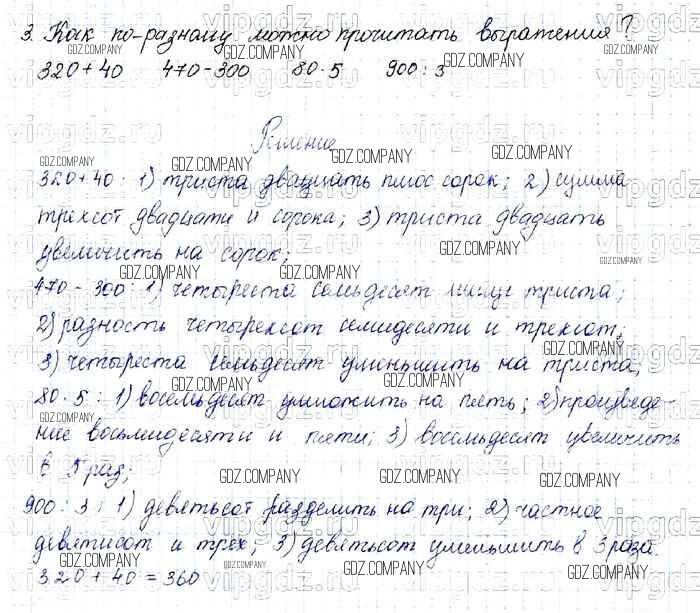 3. Как по-разному можно прочитать выражения?
320+40 470-300 80·5 900:3
Решение
320+40: 1) триста двадцать плюс сорок; 2) сумма
трехсот двадцати и сорока; 3) триста двадцать
увеличить на сорок;
470-300: 1) четыреста семьдесят минус триста;
2) разность четырехсот семидесяти и трехсот;
3) четыреста семьдесят уменьшить на триста;
80·5: 1) восемьдесят умножить на пять; 2) произведе-
ние восьмидесяти и пяти; 3) восемьдесят увеличить
в 5 раз;
900:3: 1) девятьсот разделить на три; 2) частное
девятисот и трех; 3) девятьсот уменьшить в 3 раза.
320+40=360